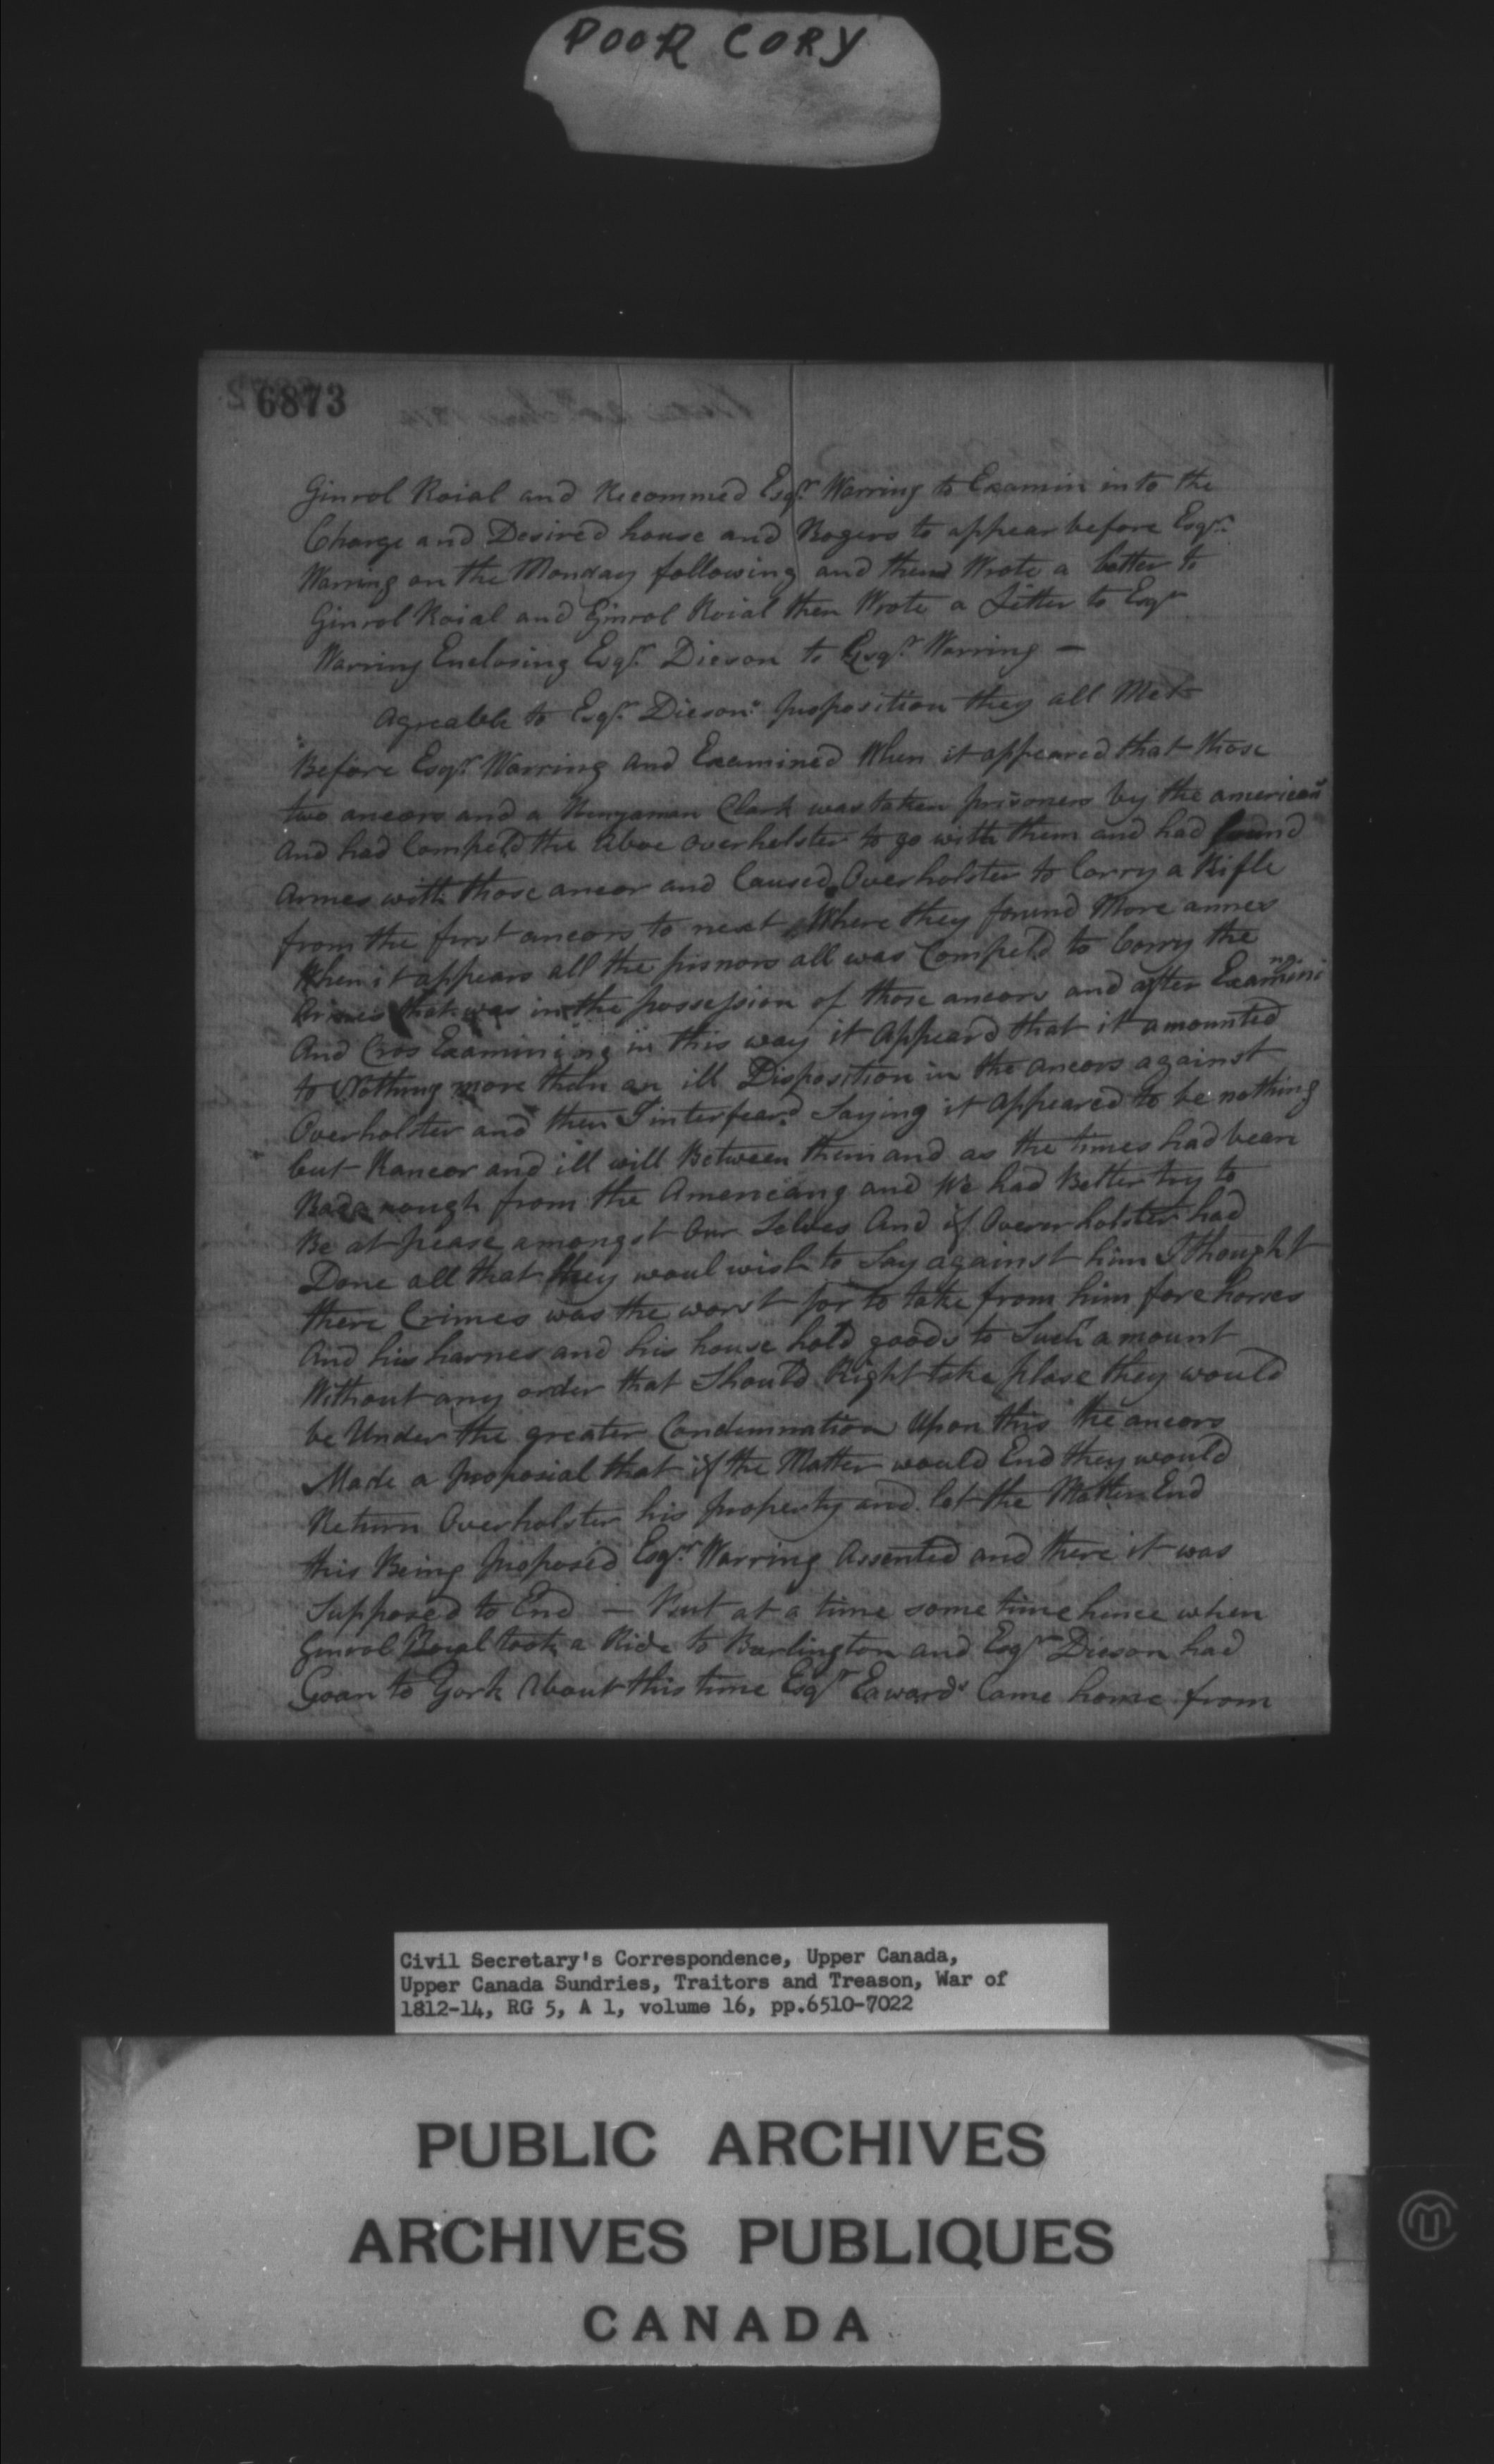 POOR COPY
6873
Ginrol Roial and Recommed Esqr. Warring to Examin in to the
Charge and Desired house and Rogers to appear before Esqr.
Warring on the Monday following and then Wrote a letter to
Ginrol Roial and Ginrol Roial then Wrote a Litter to Esqr
Warring Enclosing Esqr. Dicson to Esqr. Warring —
Agreable to Esqr. Dicsons proposition they all Met
Before Esqr. Warring and Examined When it appeared that those
two ancors and a Clark was taken prisoners by the americans
And had Compeld the Above Overholster to go with them and had found
Armes with those ancor and Caused Overholster to Carry a Rifle
from the first ancors to next Where they found More armes
When it appears all the prisnors all was Compeld to Carry the
Armes that was in the possession of those ancors and after Examining
And Cros Examining in this way it Appeard that it amounted
to Nothing more than an ill Disposition in the ancors against
Overholster and then I interfeard Saying it appeared to be nothing
but Rancor and ill will Between them and as the times had bean
Bad anough from the Americans and We had Better try to
Be at pease amongst Our Selves And if Overholster had
Done all that they woul wish to Say against him I thought
there Crimes was the worst for to take from him fore horses
And his harnes and his house hold goods to Such amount
Without any order that Should Right take plase they would
be Under the greater Condemnation Upon this the ancors
Made a proposial that if the Matter would End they would
Return Overholster his property and let the Matter End
this Being proposed Esqr. Warring Assented and there it was
Supposed to End — But at a time some time hence when
Ginrol Roial took a Ride to Burlington and Esqr Dicson had
Goan to York About this time Esqr Edwards Came home from
Civil Secretary's Correspondence, Upper Canada,
Upper Canada Sundries, Traitors and Treason, War of
1812-14, RG 5, A 1, volume 16, pp.6510-7022
PUBLIC ARCHIVES
ARCHIVES PUBLIQUES
CANADA